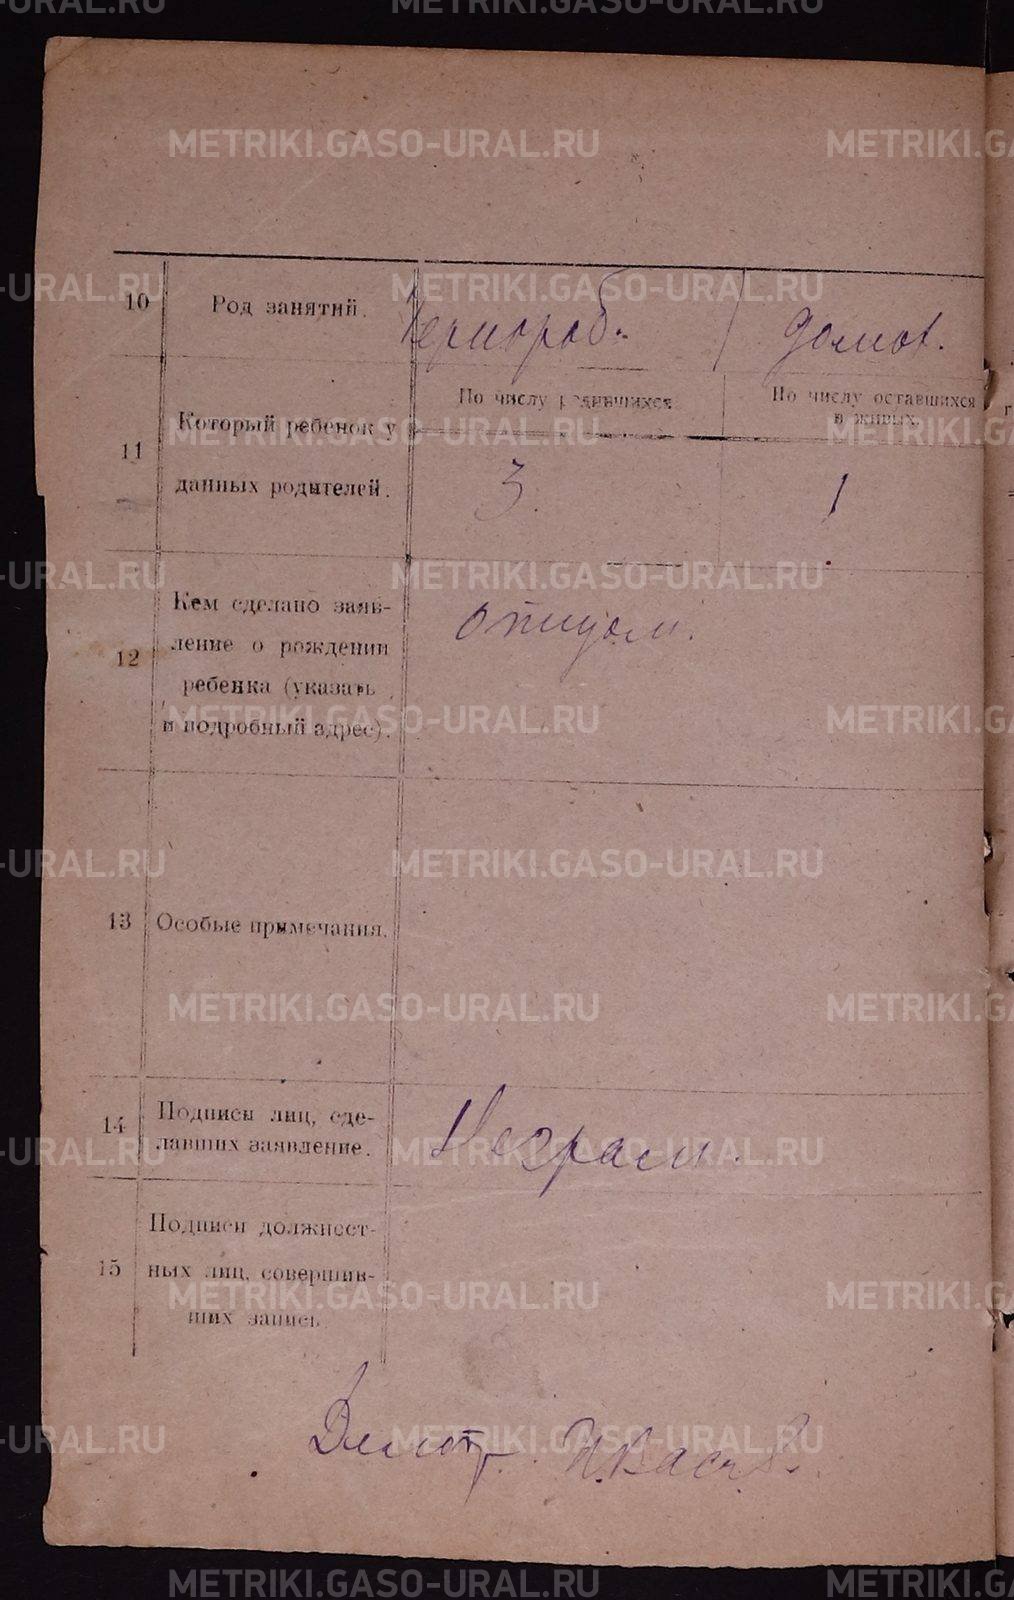 METRIKI.GASO-URAL.RU
10 Род занятий. Чернораб. домох.
11 Который ребенок у данных родителей.
По числу родившихся
По числу оставшихся
в живых.
3. 1
12 Кем сделано заяв-
ление о рождении
ребенка (указать
и подробный адрес).
отцом.
13 Особые примечания.
14 Подписи лиц, сде-
лавших заявление.
Неграм.
15 Подписи должност-
ных лиц, совершив-
ших запись